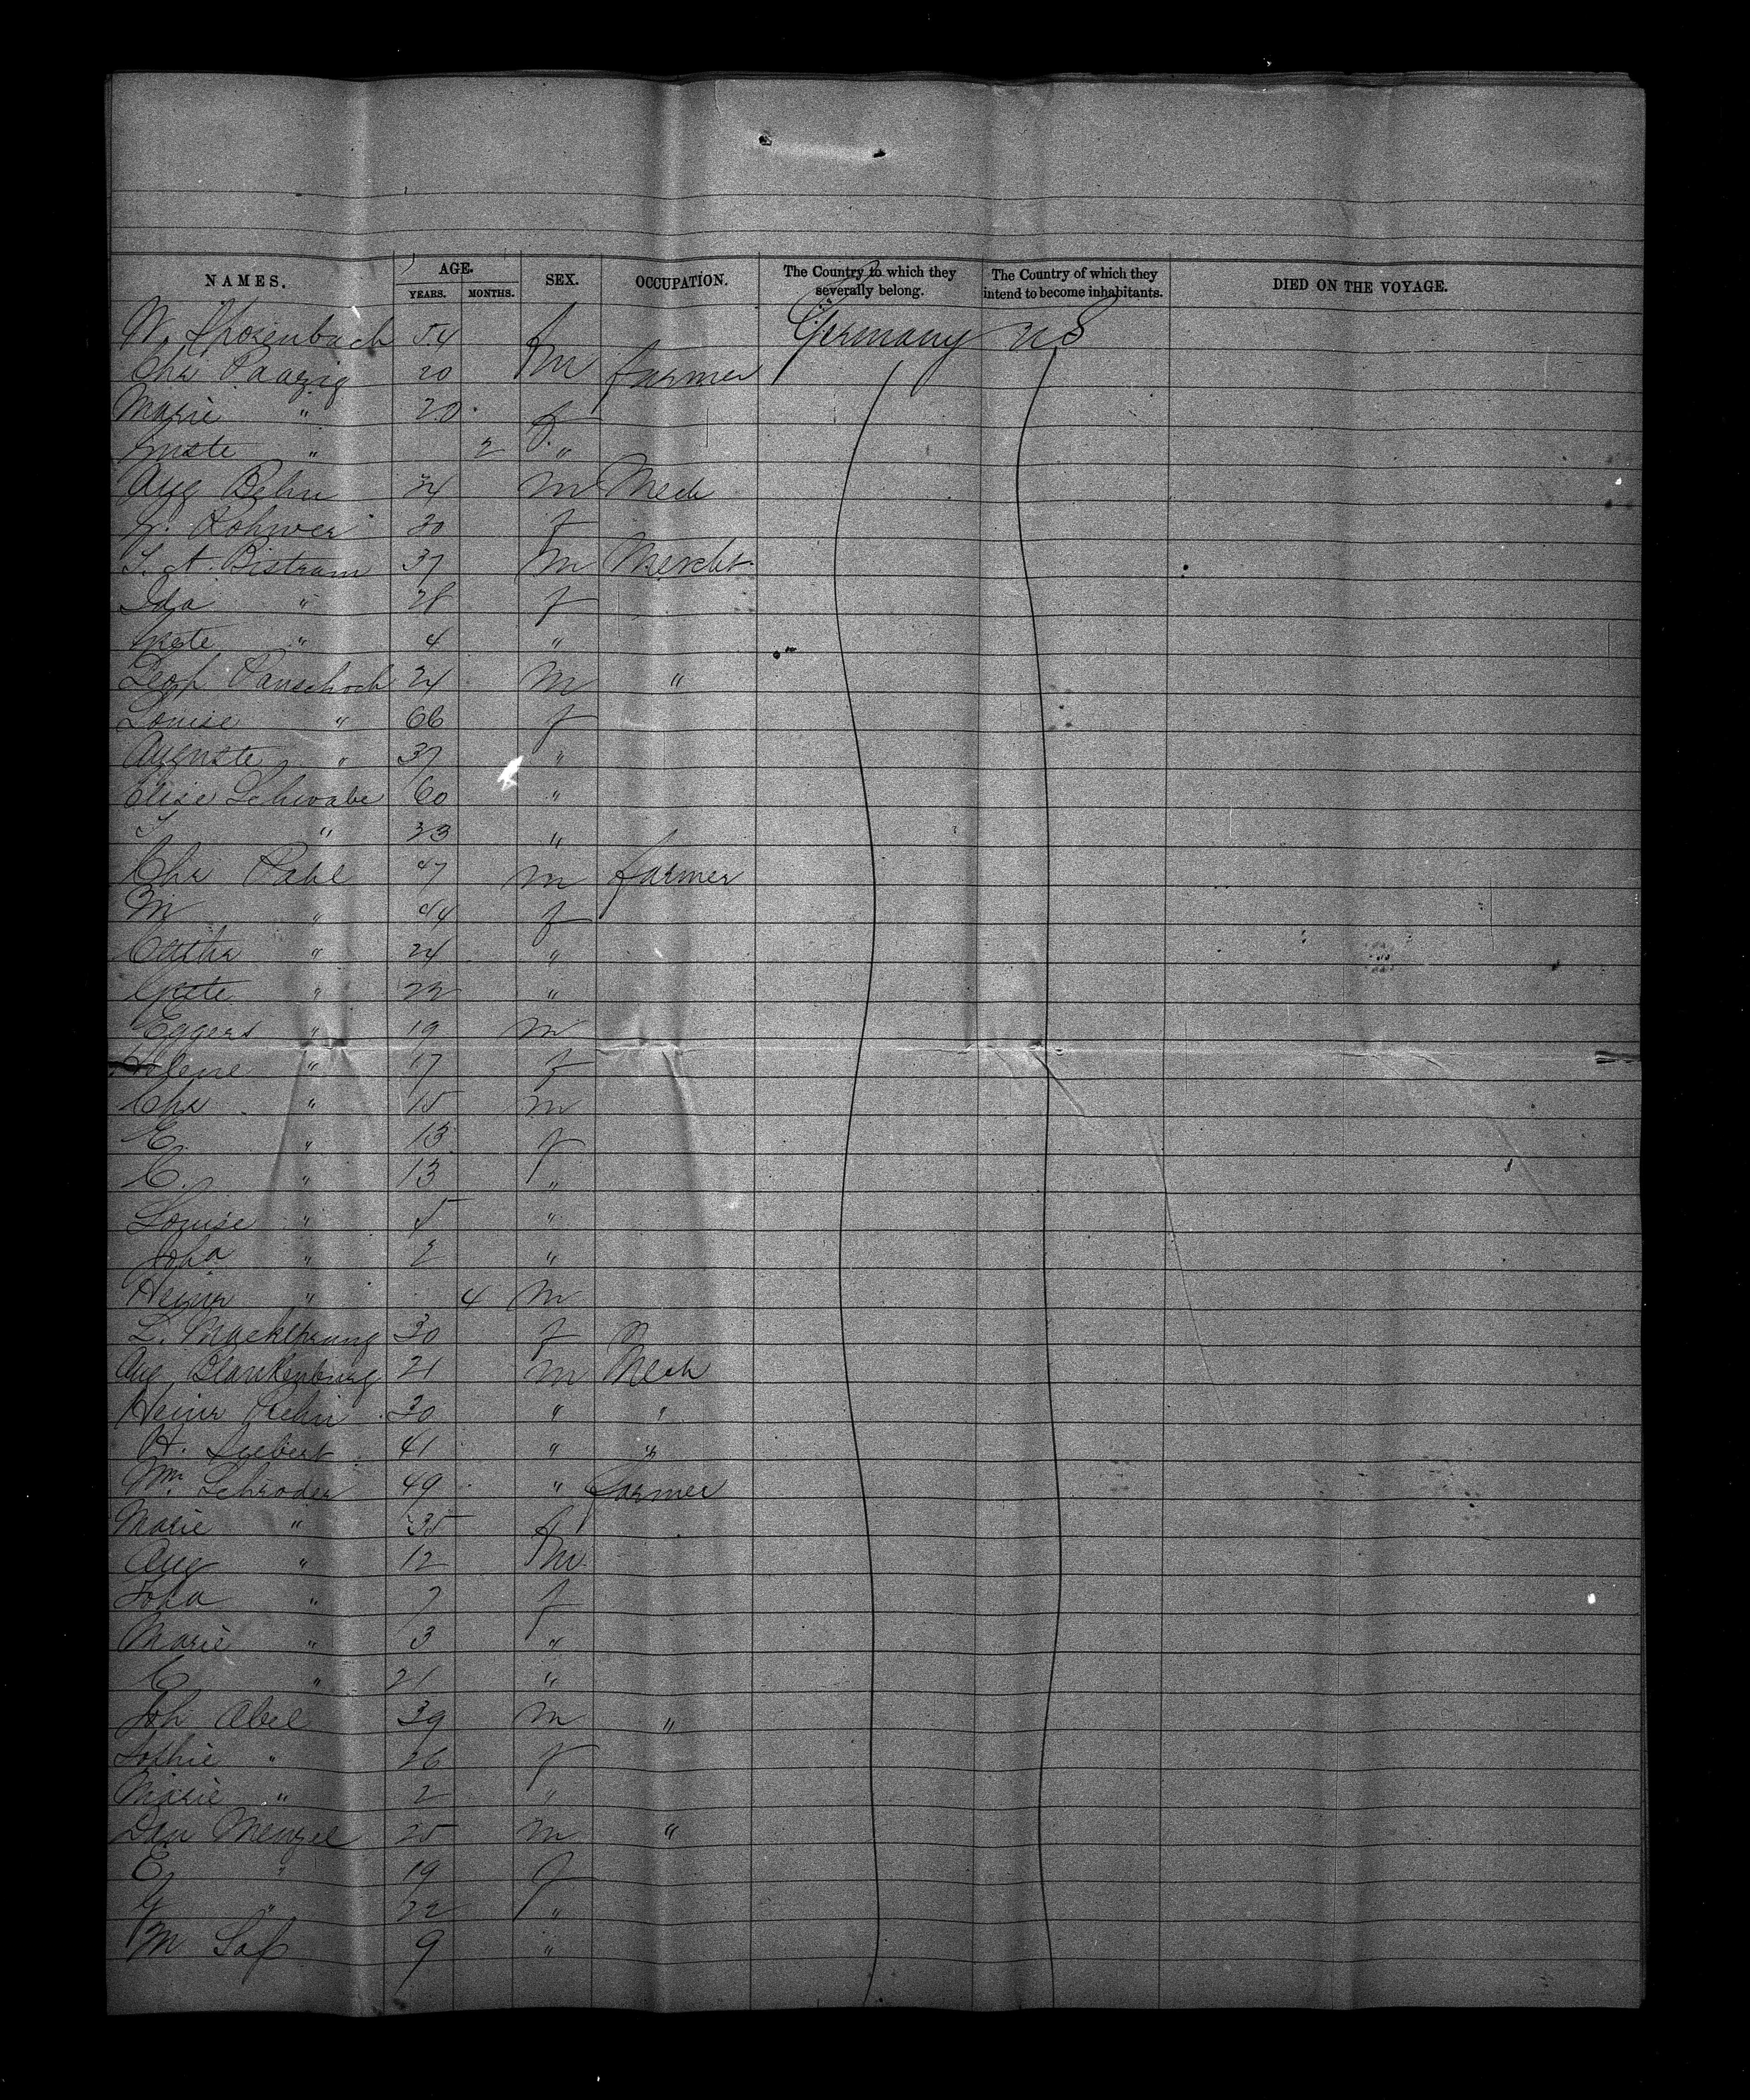 NAMES. AGE. YEARS. MONTHS. SEX. OCCUPATION. The Country to which they severally belong. The Country of which they intend to become inhabitants. DIED ON THE VOYAGE.
54 f Germany U S
Chr Paarzig 20 m farmer
Marie " 20 f
" 2 "
Aug Behn 34 m Mech
Rohwer 30 f
A. Bistram 37 m Mercht
Ida " 28 f
Grete " 4 "
Leop Panschoch 24 m "
Louise " 66 f
Auguste " 37 "
Elise Schwabe 60 "
" 33 "
Chr Pahl 47 m farmer
M " 44 f
" 24 "
Grete " 22 "
Eggers " 19 m
Helene " 17 f
Chr " 15 m
E. " 13 f
C. " 13 "
Louise " 5 "
Joha " 2 "
Heinr " 4 m
L. Mackeprang 30 f
Aug Blankenburg 21 m Mech
Heinr 30 " "
H. Siebert 41 " "
Wm. Schroder 49 " farmer
Marie " 35 f
Aug " 12 m
Joha " 7 f
Marie " 3 "
C " 21 "
Joh Abel 39 m "
Sophie " 26 f
Marie " 2 "
Dan Menzel 25 m "
E " 19 f
G " 22 "
M 9 "